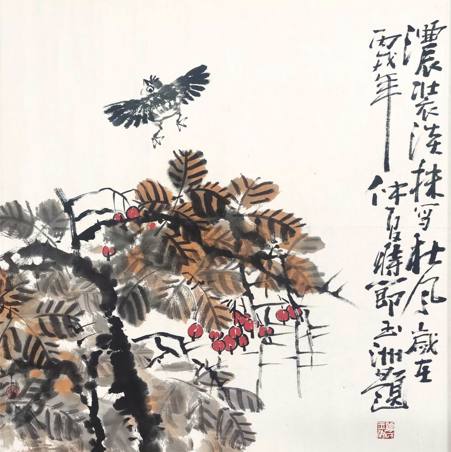 濃裝淡抹写秋风歲在
丙戌年仲夏時節玉洲題